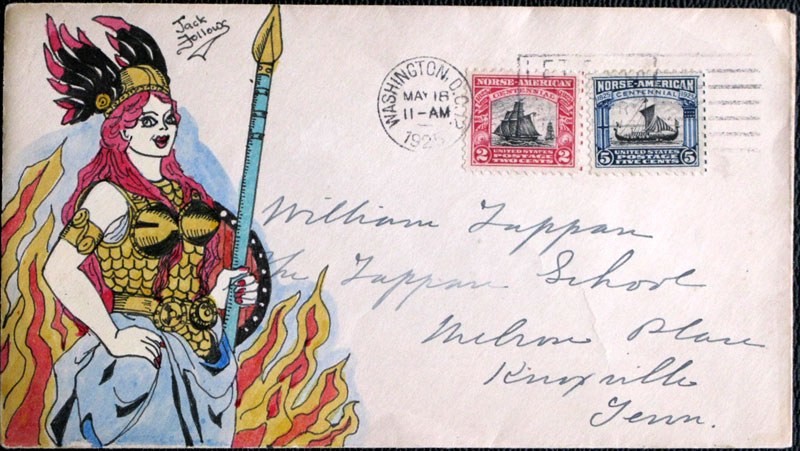 Jack
Fellows
WASHINGTON, D.C.
MAY 18
11-AM
1925
NORSE-AMERICAN
CENTENNIAL
2 2
UNITED STATES
POSTAGE
TWO CENTS
NORSE-AMERICAN
CENTENNIAL
5 5
UNITED STATES
POSTAGE
FIVE CENTS
William Tappan
The Tappan School
Melrose Place
Knoxville
Tenn.